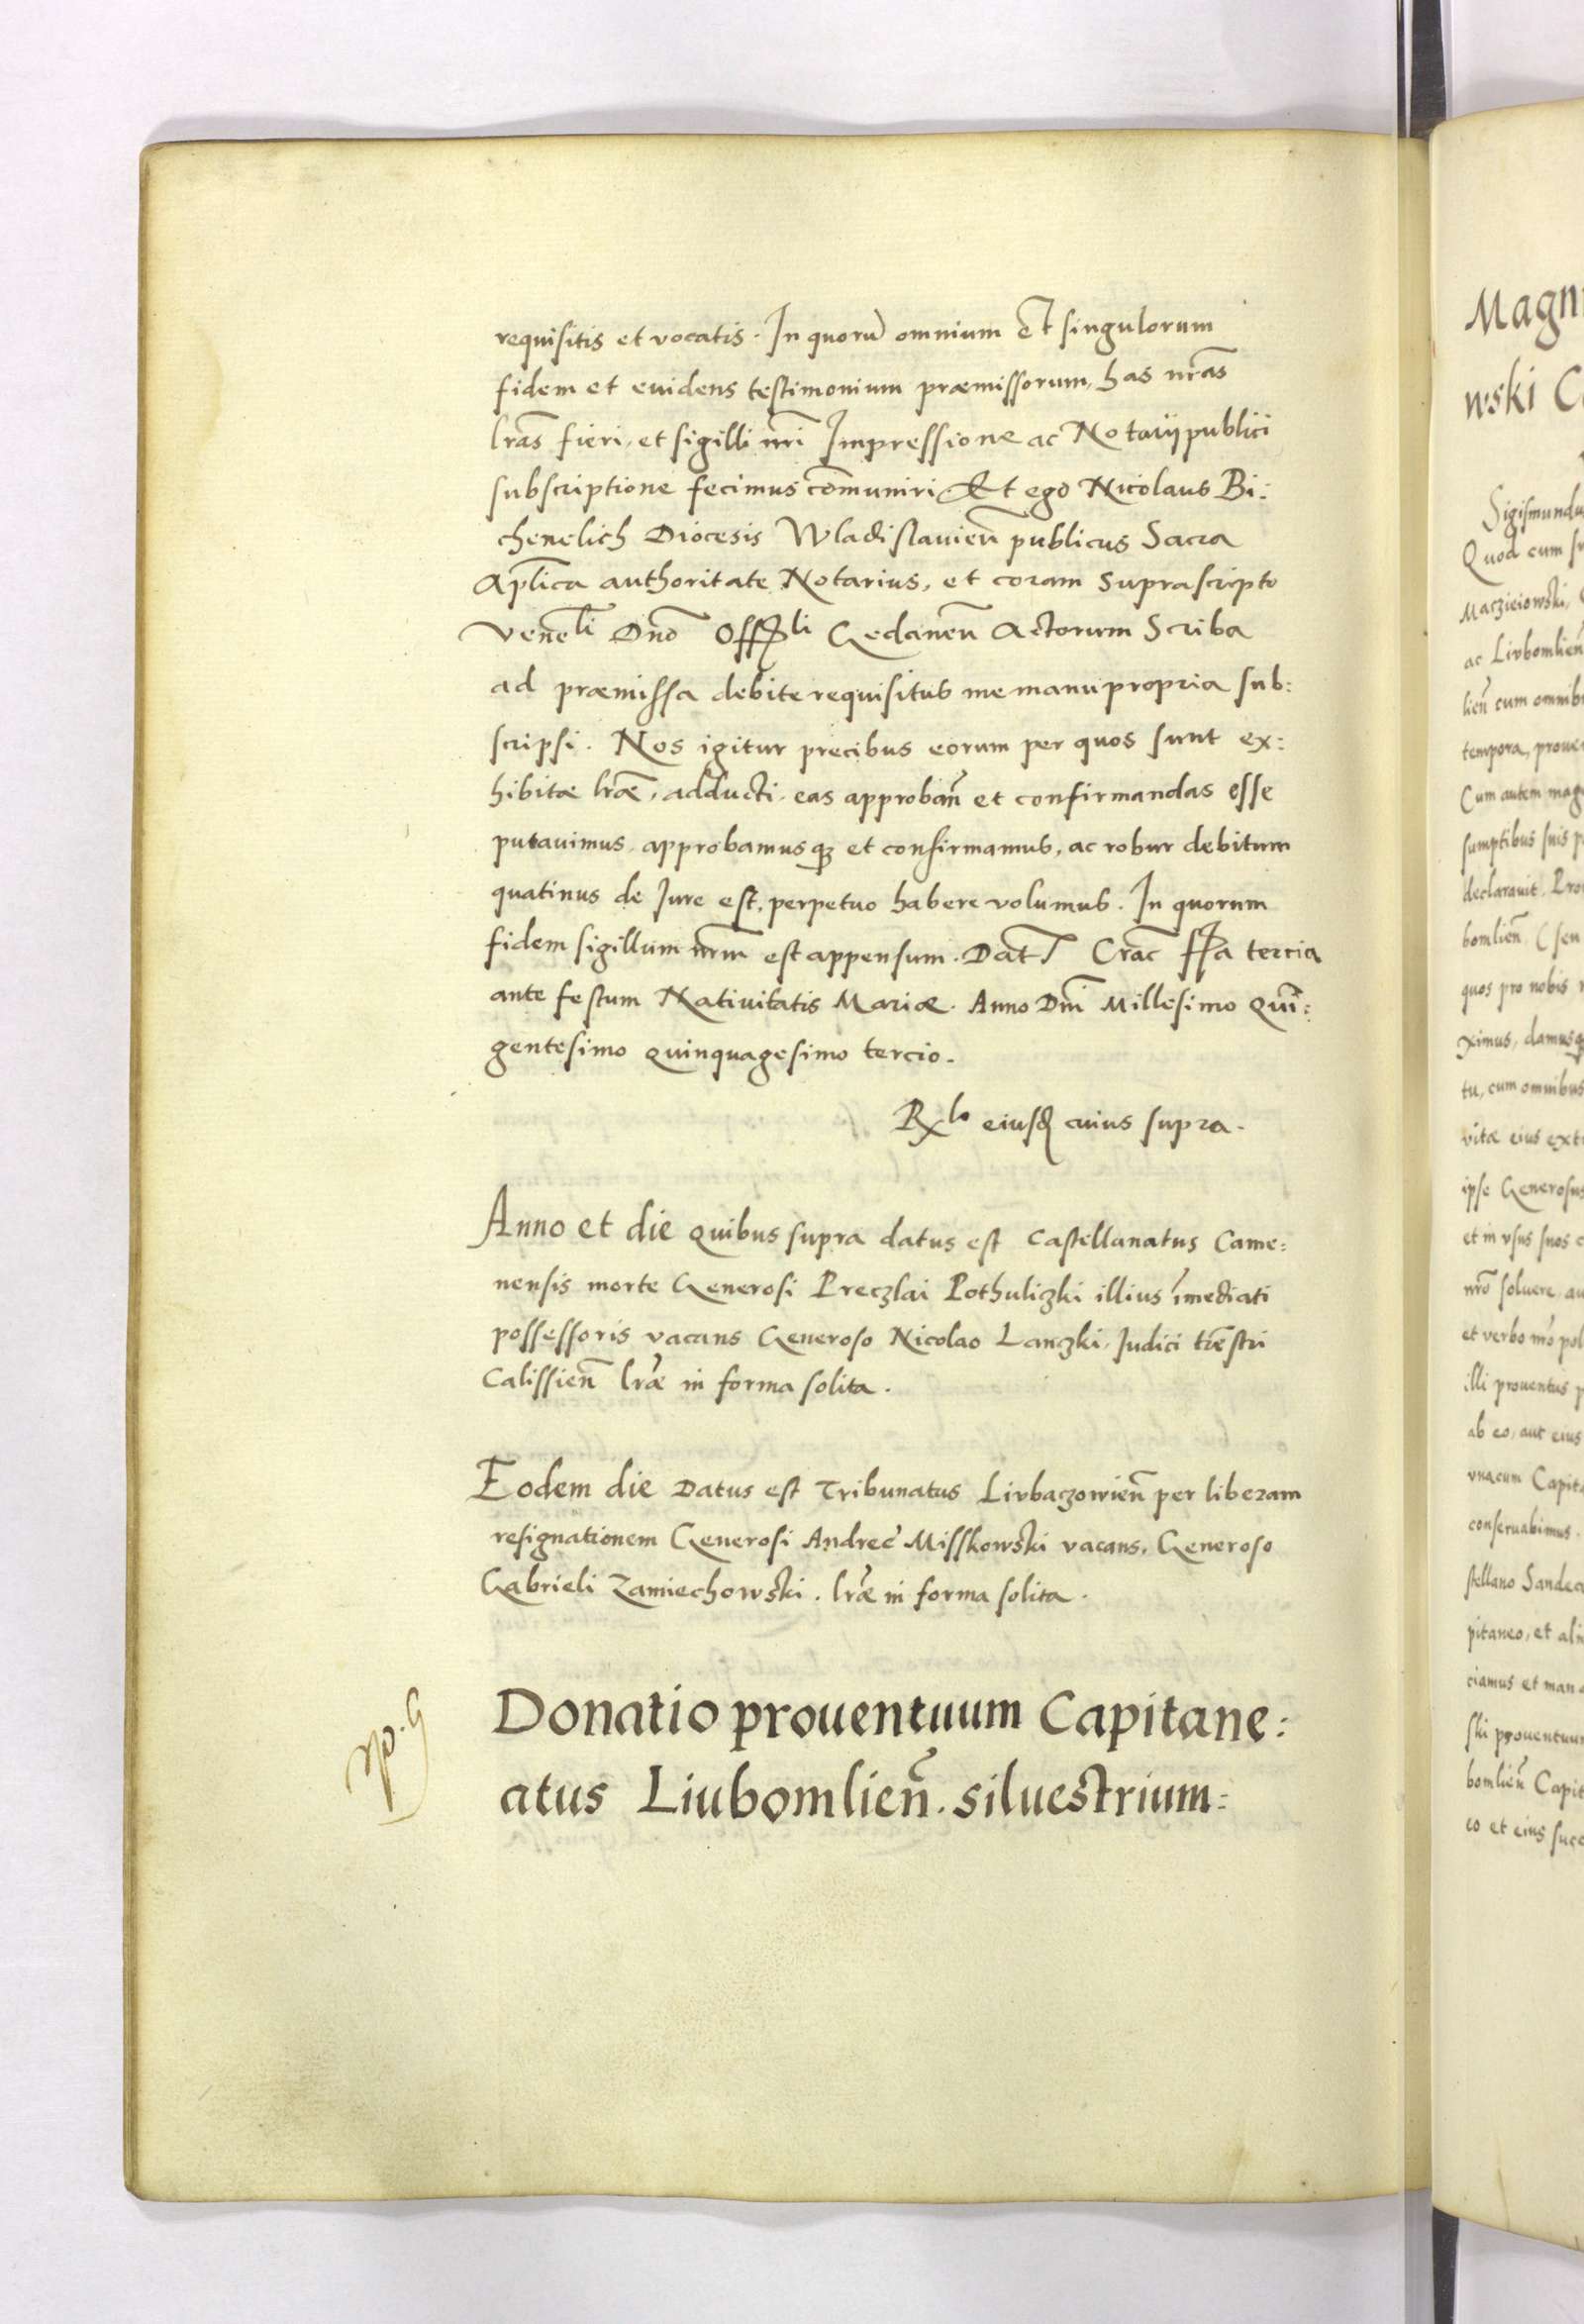 requisitis et vocatis. In quorū omnium et singulorum
fidem et euidens testimonium præmissorum, has nrãs
lrãs fieri, et sigilli nrĩ Impressione ac Notarij publici
subscriptione fecimus cõmuniri Et ego Nicolaus Bi:
chenelich Diocesis Wladislauieñ publicus Sacra
Aplĩca authoritate Notarius, et coram suprascripto
Venelĩ Dnõ Offli Gedaneñ Actorum Scriba
ad præmissa debite requisitus me manu propria sub:
scripsi. Nos igitur precibus eorum per quos sunt ex:
hibitæ lræ̃, adducti, eas approbañ et confirmandas esse
putauimus, approbamusq; et confirmamus, ac robur debitum
quatinus de Iure est, perpetuo habere volumus. In quorum
fidem sigillum nrm̃ est appensum. Dat̃ Crac̃ ffa tercia
ante festum Natiuitatis Mariæ. Anno Dnĩ Millesimo Quĩ:
gentesimo quinquagesimo tercio.
Rlo eiusd cuius supra.
Anno et die quibus supra datus est Castellanatus Came:
nensis morte Generosi Preczlai Pothuliczki illius ĩmediati
possessoris vacans Generoso Nicolao Lanczki, Iudici trẽstri
Calissieñ lræ̃ in forma solita.
Eodem die Datus est Tribunatus Liubaczowieñ per liberam
resignationem Generosi Andreę Misskowski vacans, Generoso
Gabrieli Zamiechowski. lræ̃ in forma solita.
Donatio prouentuum Capitane:
atus Liubomlieñ. siluestrium:
Magni
wski
Sigismundu
Quod cum
Maczieiowski,
ac Liubomlieñ
lieñ cum omnib
tempora, proue
Cum autem mag
sumptibus suis p
declarauit. Pro
bomlieñ (seu
quos pro nobis
ximus, damusq
tu, cum omnibus
vitæ eius ext
ipse Generosus
et in vsus suos c
nrõ soluere, au
et verbo nrõ pol
illi prouentus p
ab eo, aut eius
vnacum Capita
conseruabimus.
stellano Sandec
pitaneo, et ali
ciamus et man
ski prouentuu
bomlieñ Capit
eo et eius succ